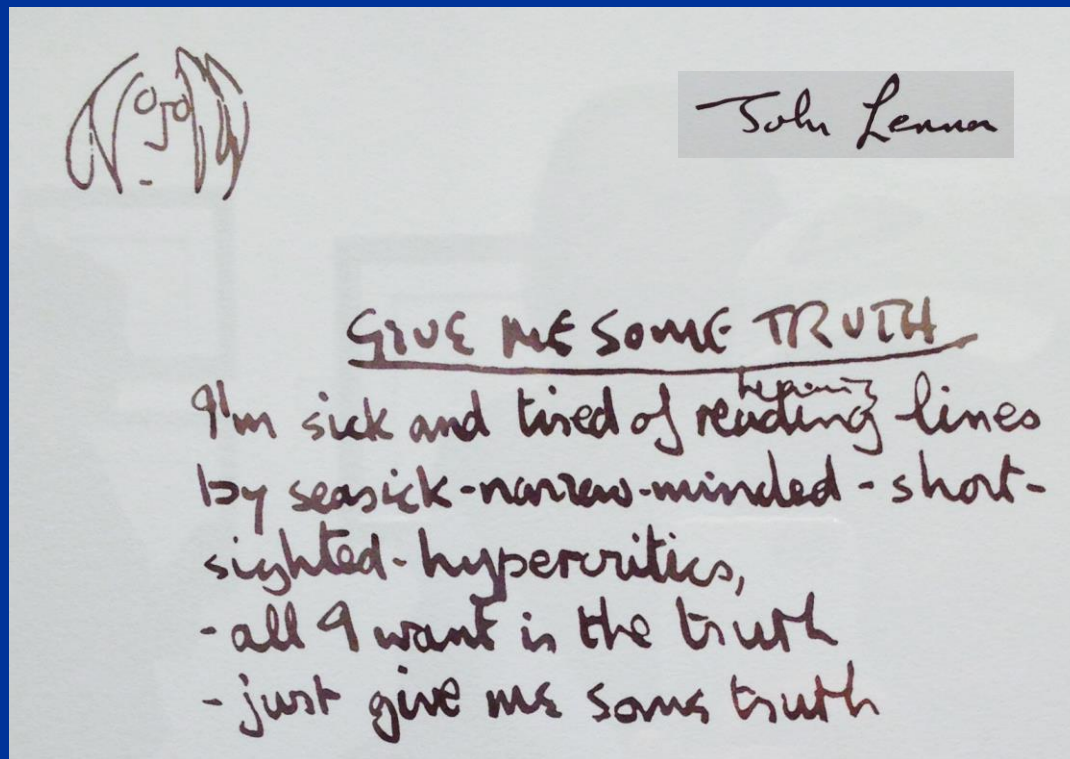 John Lennon
GIVE ME SOME TRUTH
hearing
I'm sick and tired of reading lines
by seasick-narrow-minded-short-
sighted-hypercritics,
-all I want is the truth
-just give me some truth